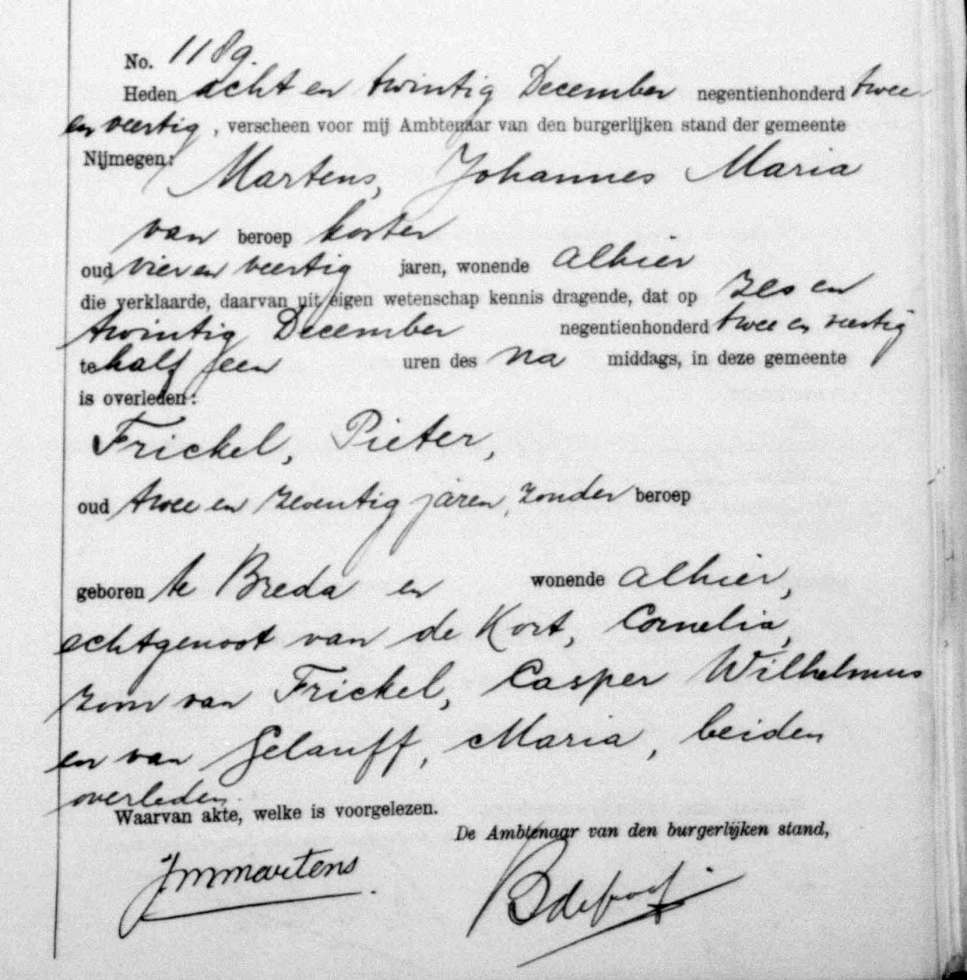 No. 1189.
Heden acht en twintig December negentienhonderd twee
en veertig, verscheen voor mij Ambtenaar van den burgerlijken stand der gemeente
Nijmegen:
Martens, Johannes Maria
van beroep koster
oud vier en veertig jaren, wonende alhier
die verklaarde, daarvan uit eigen wetenschap kennis dragende, dat op zes en
twintig December negentienhonderd twee en veertig
te half een uren des na middags, in deze gemeente
is overleden:
Frickel, Pieter,
oud twee en zeventig jaren, zonder beroep
geboren te Breda en wonende alhier,
echtgenoot van de Kort, Cornelia,
zoon van Frickel, Casper Wilhelmus
en van Gelauff, Maria, beiden
overleden.
Waarvan akte, welke is voorgelezen.
De Ambtenaar van den burgerlijken stand,
JMMartens